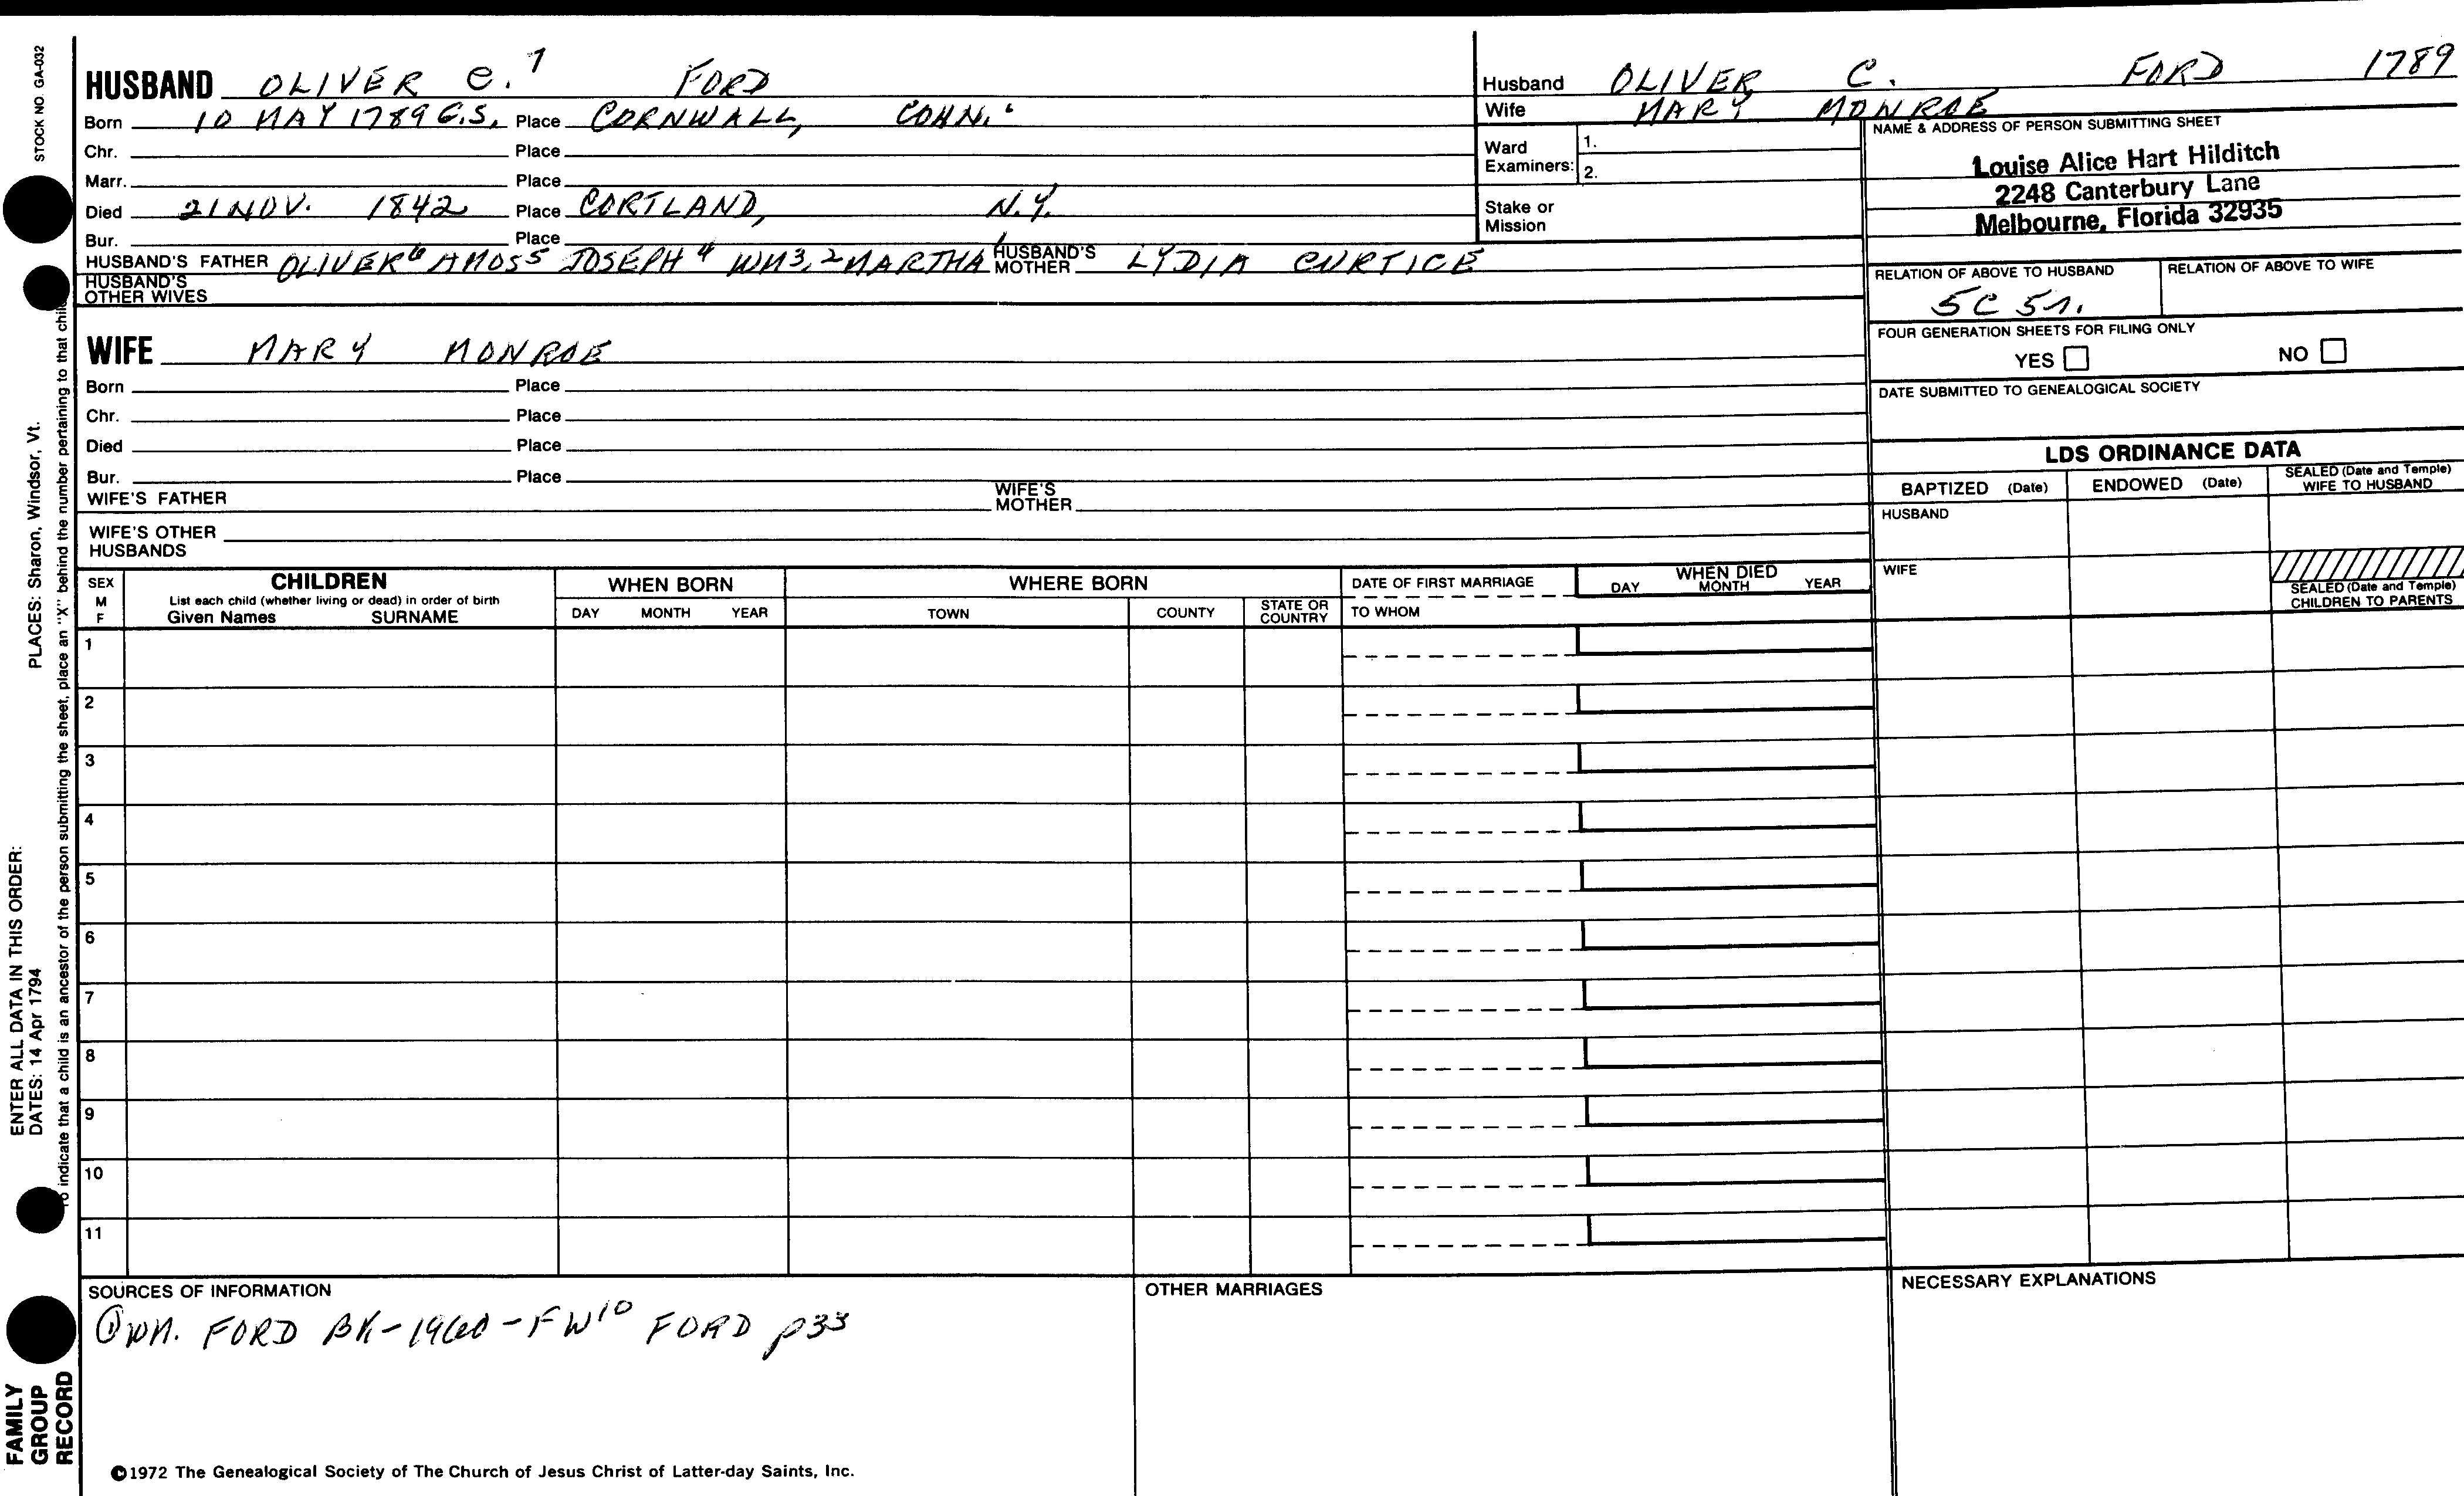 STOCK NO. GA-032
HUSBAND OLIVER C.7 FORD
Born 10 MAY 1789 G.S. Place CORNWALL, CONN.
Chr. Place
Marr. Place
Died 21 NOV. 1842 Place CORTLAND, N.Y.
Bur. Place
HUSBAND'S FATHER OLIVER6 AMOS5 JOSEPH4 WM3,2 MARTHA1 HUSBAND'S MOTHER LYDIA CURTICE
HUSBAND'S OTHER WIVES
Husband OLIVER C. FORD 1789
Wife MARY MONROE
Ward Examiners: 1.
2.
Stake or Mission
NAME & ADDRESS OF PERSON SUBMITTING SHEET
Louise Alice Hart Hilditch
2248 Canterbury Lane
Melbourne, Florida 32935
RELATION OF ABOVE TO HUSBAND RELATION OF ABOVE TO WIFE
5C 5r.
FOUR GENERATION SHEETS FOR FILING ONLY
YES NO
DATE SUBMITTED TO GENEALOGICAL SOCIETY
WIFE MARY MONROE
Born Place
Chr. Place
Died Place
Bur. Place
WIFE'S FATHER WIFE'S MOTHER
WIFE'S OTHER HUSBANDS
LDS ORDINANCE DATA
BAPTIZED (Date) ENDOWED (Date) SEALED (Date and Temple) WIFE TO HUSBAND
HUSBAND
WIFE
SEALED (Date and Temple) CHILDREN TO PARENTS
SEX M F
CHILDREN
List each child (whether living or dead) in order of birth
Given Names SURNAME
WHEN BORN
DAY MONTH YEAR
WHERE BORN
TOWN COUNTY STATE OR COUNTRY
DATE OF FIRST MARRIAGE
TO WHOM
WHEN DIED
DAY MONTH YEAR
1
2
3
4
5
6
7
8
9
10
11
SOURCES OF INFORMATION
① WM. FORD BK-1960-FW10 FORD p33
OTHER MARRIAGES
NECESSARY EXPLANATIONS
©1972 The Genealogical Society of The Church of Jesus Christ of Latter-day Saints, Inc.
FAMILY GROUP RECORD
ENTER ALL DATA IN THIS ORDER:
DATES: 14 Apr 1794 PLACES: Sharon, Windsor, Vt.
To indicate that a child is an ancestor of the person submitting the sheet, place an "X" behind the number pertaining to that